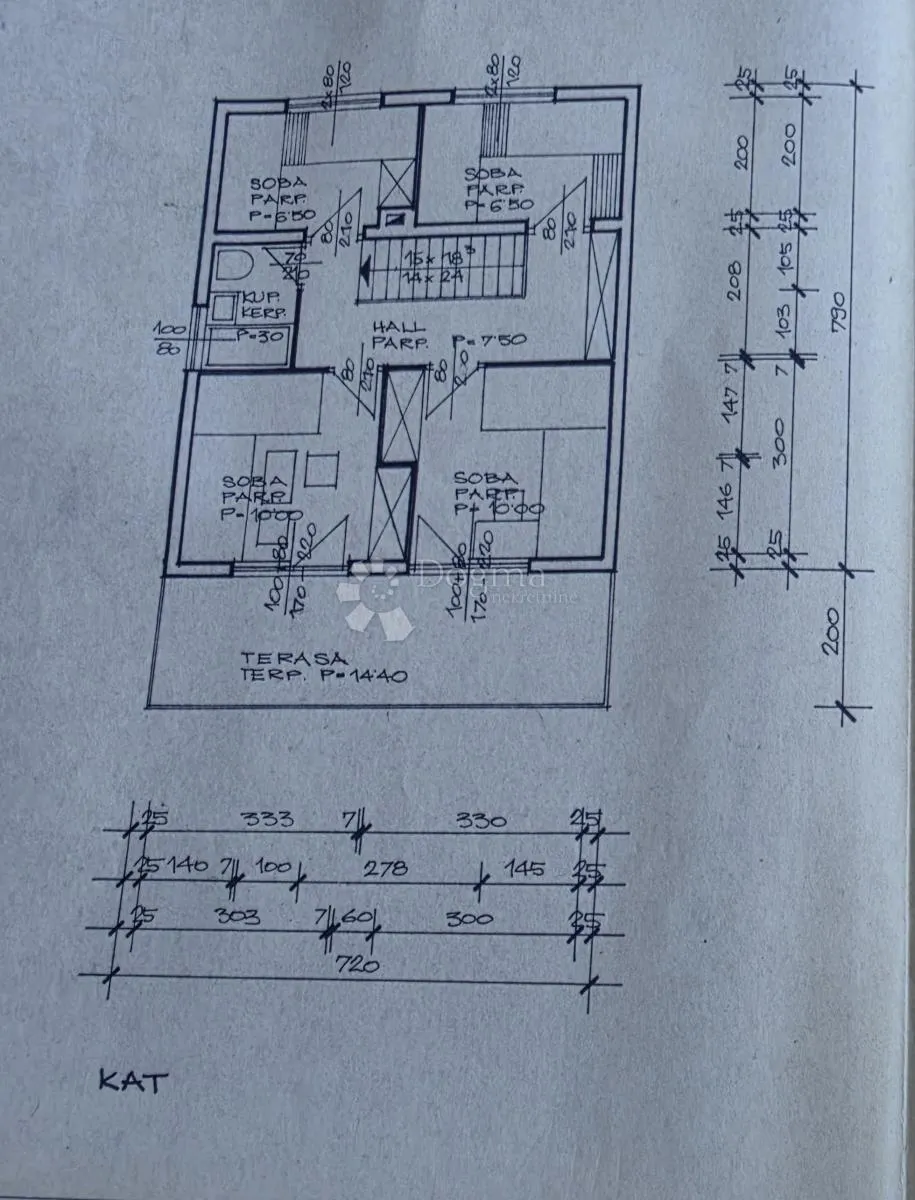 2x80
120
2x80
120
SOBA
PARP.
P=6'50
SOBA
PARP.
P=6'50
80
210
80
210
70
210
15x18
14x24
KUP.
KERP.
P=30
100
80
HALL
PARP. P=7'50
80
210
80
200
SOBA
PARP.
P=10'00
SOBA
PARP.
P=10'00
100+80
170 220
100+80
170 220
Dogma
nekretnine
TERASA
TERP. P=14'40
25 200 25 208 7 147 7 146 25
25 200 25 105 103 7 300 25
790
200
25 333 7 330 25
25 140 7 100 278 145 25
25 303 7 60 300 25
720
KAT